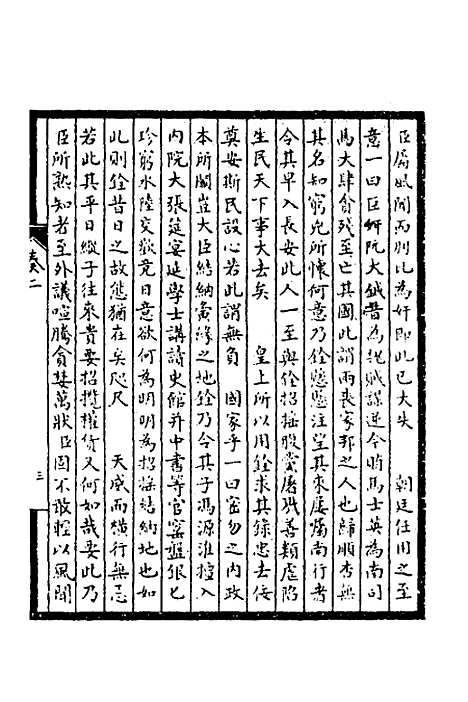 臣屬風聞而別比為奸即此已大失　朝廷任用之至
意一曰臣奸阮大鋮昔為魏賊謀逆今暗馬士英為南司
馬大肆貪殘至亡其國此謂兩喪家邦之人也歸順杳無
其名知窮兇所懷何意乃銓懸懸注望其來屢囑南行者
令其早入長安此人一至與銓招搖股掌屠戮善類虛陷
生民天下事大去矣　皇上所以用銓求其錄忠去佞
奠安斯民設心若此謂無負　國家乎一曰密勿之內政
本所關豈大臣結納夤緣之地銓乃令其子馮源淮擅入
內院大張筵宴延學士講讀史館并中書等官窰盤銀匕
珍窮水陸交歡竟日意欲何為明明為招搖結納地也如
此則銓昔日之故態猶在矣咫尺　天威而橫行無忌
若此其平日縱子往來貴要招攬權貨又何如哉要此乃
臣所熟知者至外議喧騰貪婪萬狀臣固不敢輕以風聞
奏二
三